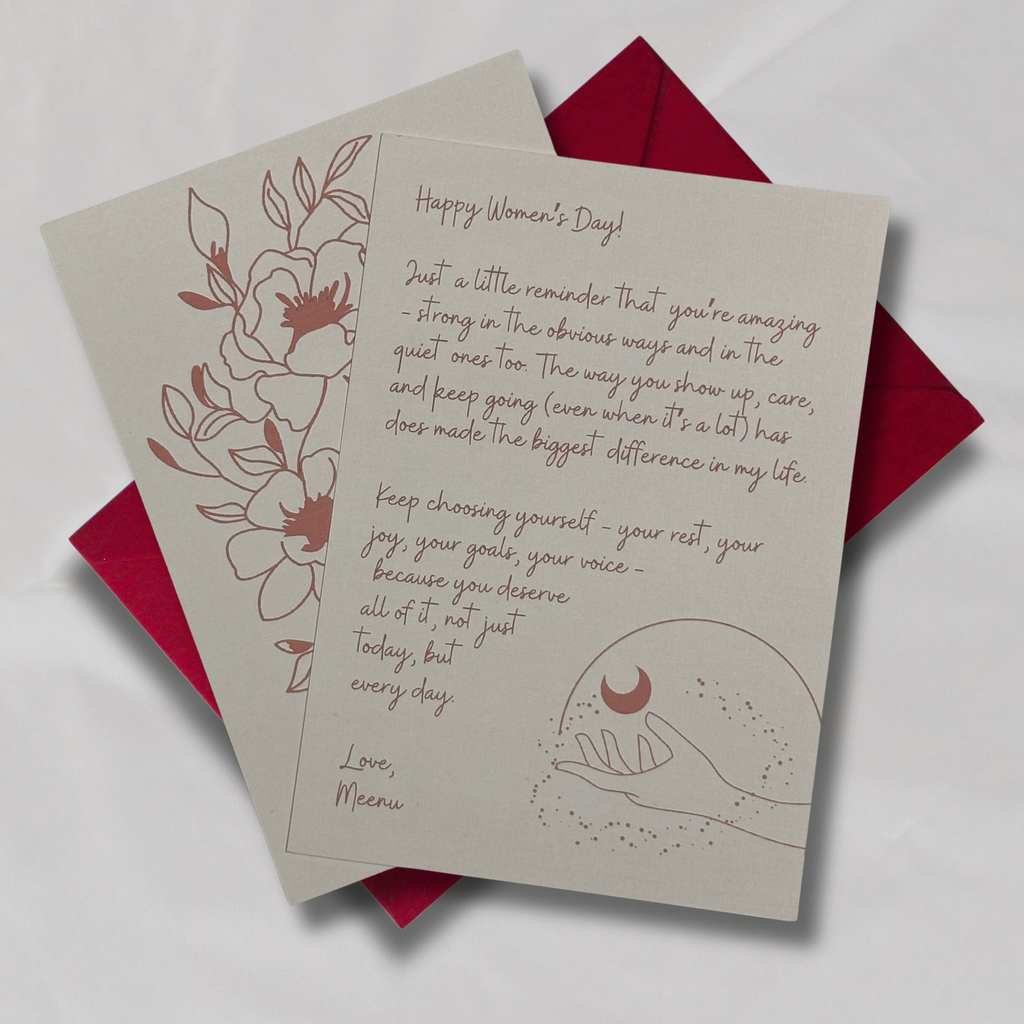 Happy Women's Day!
Just a little reminder that you're amazing
- strong in the obvious ways and in the
quiet ones too. The way you show up, care,
and keep going (even when it's a lot) has
does made the biggest difference in my life.
Keep choosing yourself - your rest, your
joy, your goals, your voice -
because you deserve
all of it, not just
today, but
every day.
Love,
Meenu